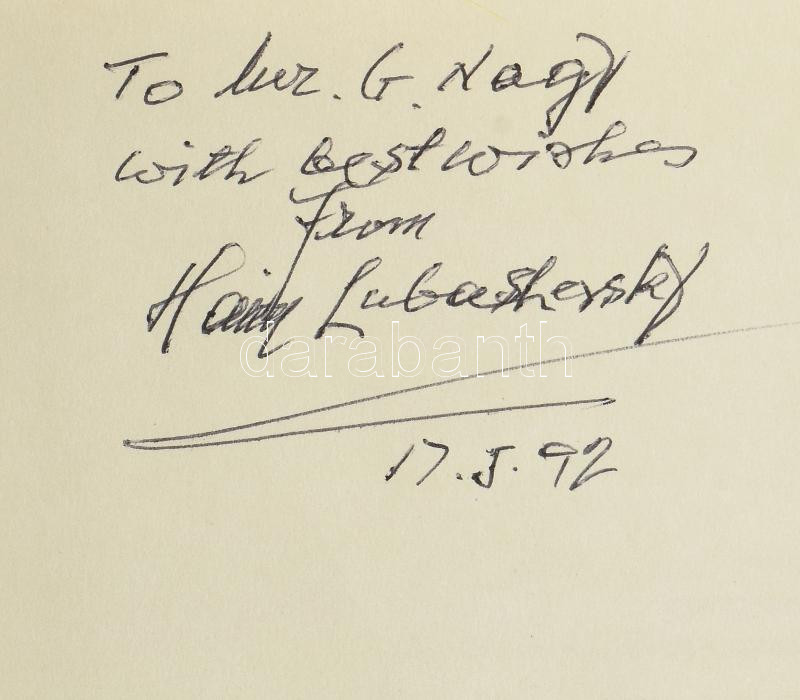 To Mr. G. Nagy
with best wishes
from
Haim Lubashersky
darabanth
17.5.92